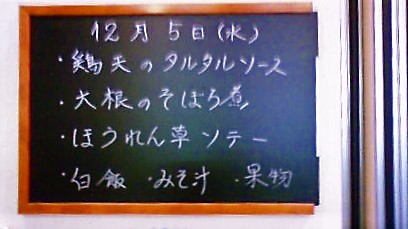 12月5日(水)
・鶏天のタルタルソース
・大根のそぼろ煮
・ほうれん草ソテー
・白飯 ・みそ汁 ・果物